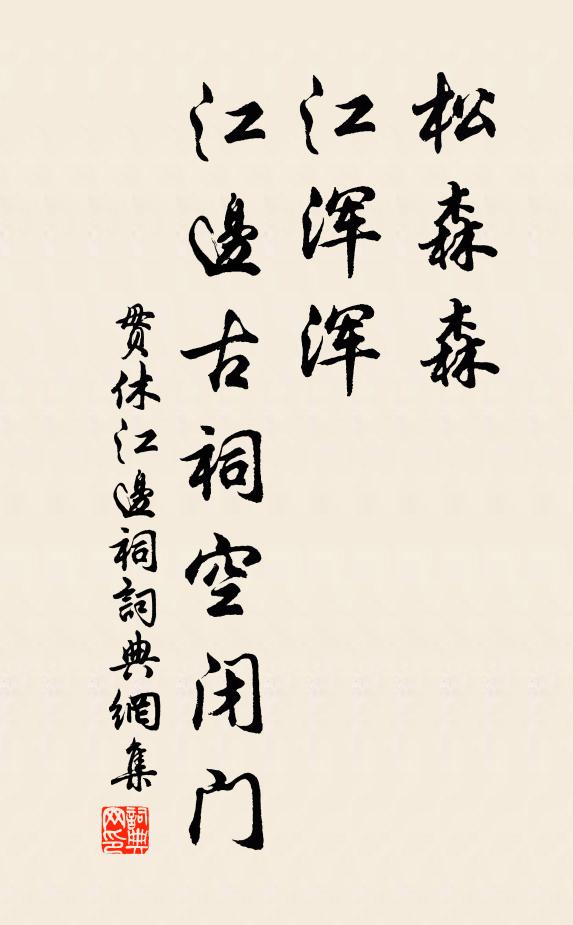 松森森
江浑浑
江邊古祠空闭门
贯休江邊祠詞典網集
詞典網印